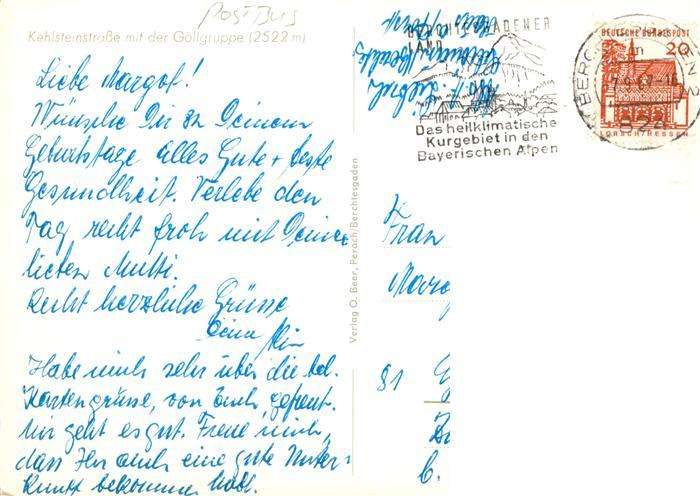 POSTBUS
Kehlsteinstraße mit der Göllgruppe (2522 m)
Liebe Margot!
Wünsche Dir zu Deinem
Geburtstage alles Gute + beste
Gesundheit. Verlebe den
Tag recht froh mit Deiner
lieben Mutti.
Recht herzliche Grüsse
Deine
Habe mich sehr über die
Kartengrüsse, von Euch gefreut.
Mir geht es gut. Freue mich,
dass Ihr auch eine gute Unter-
kunft bekommen habt.
Verlag O. Beer, Perach/Berchtesgaden
BERCHTESGADENER
LAND
Das heilklimatische
Kurgebiet in den
Bayerischen Alpen
DEUTSCHE BUNDESPOST
20
LORSCH/HESSEN
Frau
81
b.